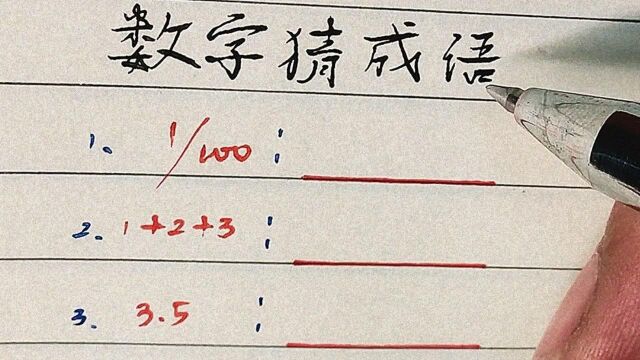 数字猜成语
1. 1/100:
2. 1+2+3:
3. 3.5: